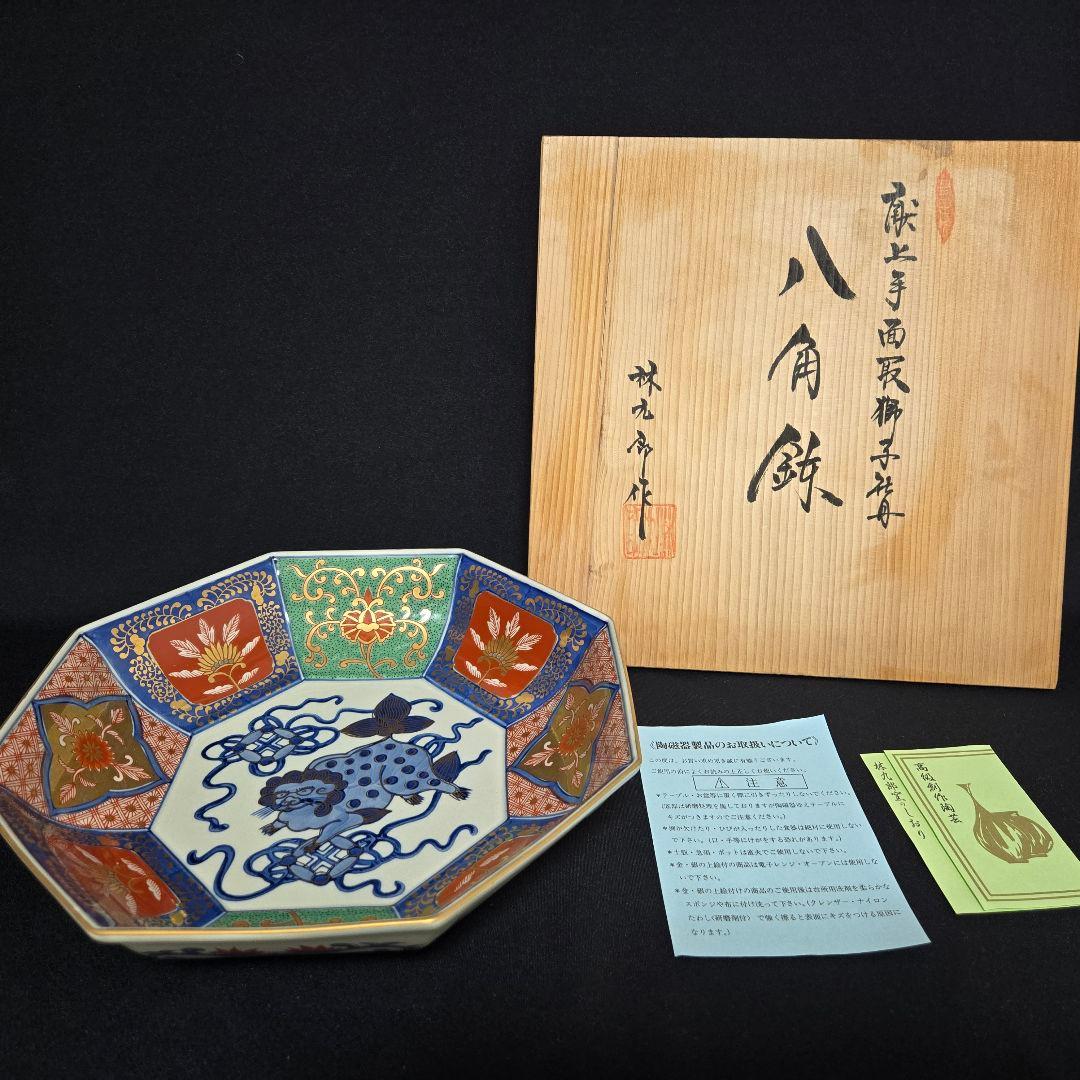 献上手面取獅子牡丹
八角鉢
林九郎作
《陶磁器製品のお取扱いについて》
この度は、お買い求め頂き誠に有難うございます。
ご使用の前によくお読みの上正しくお使いください。
⚠ 注意
＊テーブル・お盆等に置く際に引きずったりしないでください。
(底部は研磨処理を施しておりますが陶磁器ゆえテーブルに
キズがつきますのでご注意ください。)
＊縁が欠けたり・ひびが入ったりした食器は絶対に使用しない
で下さい。(口・手等にけがをする恐れがあります。)
＊土瓶・急須・ポットは直火でご使用しないで下さい。
＊金・銀の上絵付の商品は電子レンジ・オーブンには使用しな
いで下さい。
＊金・銀の上絵付けの商品のご使用後は台所用洗剤を柔らかな
スポンジや布に付け洗って下さい。(クレンザー・ナイロン
たわし(研磨剤付)で強く擦ると表面にキズをつける原因に
なります。)
高級創作陶芸
林九郎窯のしおり